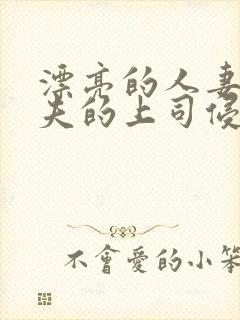 漂亮的人妻
夫的上司侵
不會愛的小笨